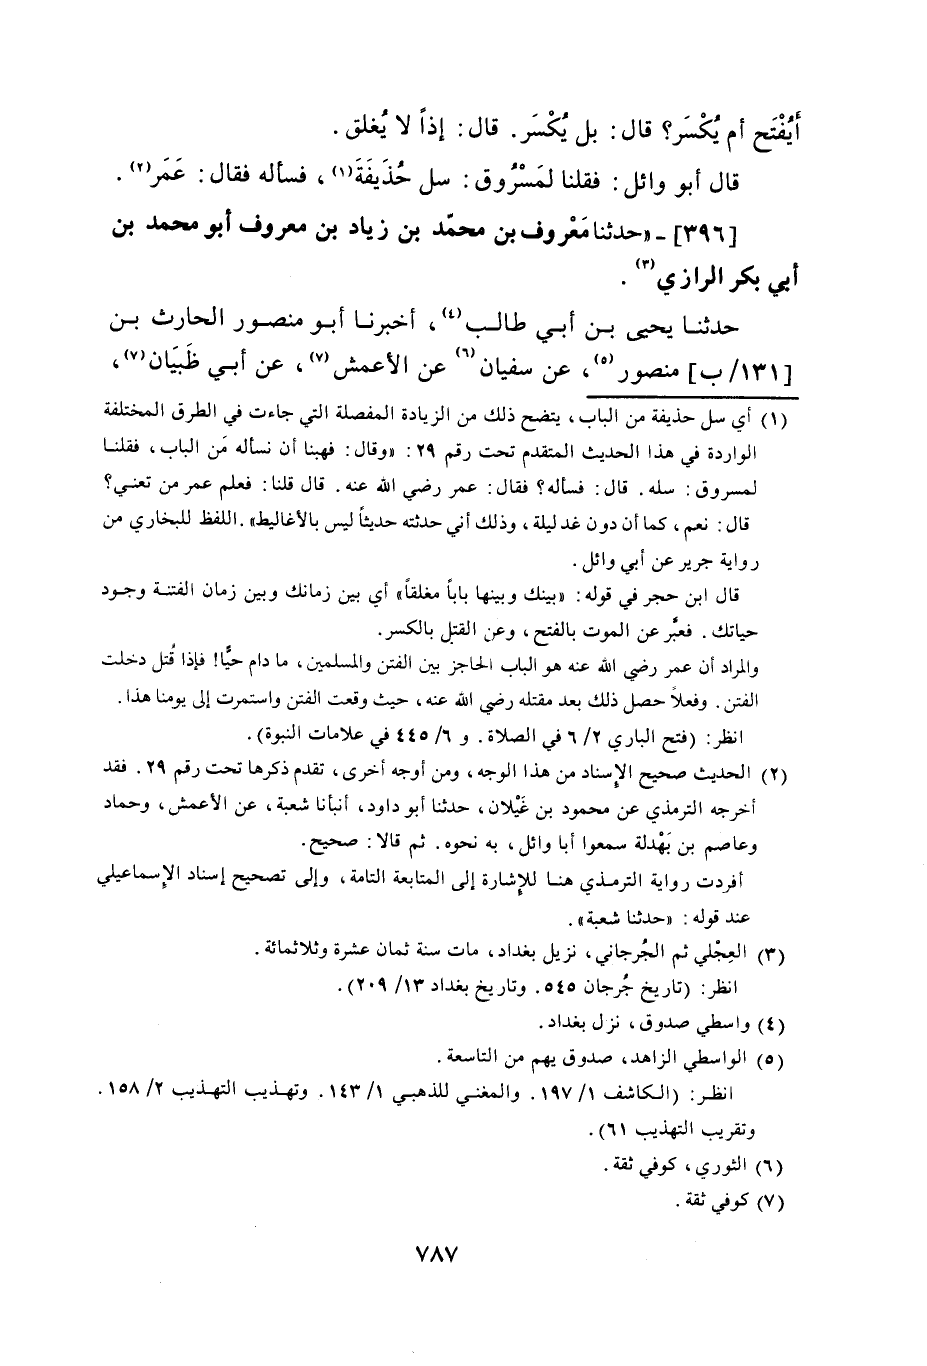 أَيُفْتَح أم يُكْسَر؟ قال: بل يُكْسَر. قال: إذاً لا يُغلق.
قال أبو وائل: فقلنا لمَسْرُوق: سل حُذَيفَةَ(١)، فسأله فقال: عَمَر(٢).
[٣٩٦] ـ «حدثنا مَعْروف بن محمّد بن زياد بن معروف أبو محمد بن
أبي بكر الرازي(٣).
حدثنا يحيى بن أبي طالب(٤)، أخبرنا أبو منصور الحارث بن
[١٣١/ب] منصور(٥)، عن سفيان(٦) عن الأعمش(٧)، عن أبي ظَبَيَان(٧)،
(١) أي سل حذيفة من الباب، يتضح ذلك من الزيادة المفصلة التي جاءت في الطرق المختلفة
الواردة في هذا الحديث المتقدم تحت رقم ٢٩: «وقال: فهبنا أن نسأله مَن الباب، فقلنا
لمسروق: سله. قال: فسأله؟ فقال: عمر رضي الله عنه. قال قلنا: فعلم عمر من تعني؟
قال: نعم، كما أن دون غد ليلة، وذلك أني حدثته حديثاً ليس بالأغاليط». اللفظ للبخاري من
رواية جرير عن أبي وائل.
قال ابن حجر في قوله: «بينك وبينها باباً مغلقاً» أي بين زمانك وبين زمان الفتنة وجود
حياتك. فعبَّر عن الموت بالفتح، وعن القتل بالكسر.
والمراد أن عمر رضي الله عنه هو الباب الحاجز بين الفتن والمسلمين، ما دام حيًّا! فإذا قُتل دخلت
الفتن. وفعلاً حصل ذلك بعد مقتله رضي الله عنه، حيث وقعت الفتن واستمرت إلى يومنا هذا.
انظر: (فتح الباري ٢/ ٦ في الصلاة. و ٦/ ٤٤٥ في علامات النبوة).
(٢) الحديث صحيح الإسناد من هذا الوجه، ومن أوجه أخرى، تقدم ذكرها تحت رقم ٢٩. فقد
أخرجه الترمذي عن محمود بن غَيْلان، حدثنا أبو داود، أنبأنا شعبة، عن الأعمش، وحماد
وعاصم بن بَهْدلة سمعوا أبا وائل، به نحوه. ثم قالا: صحيح.
أفردت رواية الترمذي هنا للإشارة إلى المتابعة التامة، وإلى تصحيح إسناد الإسماعيلي
عند قوله: «حدثنا شعبة».
(٣) العِجْلي ثم الجُرجاني، نزيل بغداد، مات سنة ثمان عشرة وثلاثمائة.
انظر: (تاريخ جُرجان ٥٤٥. وتاريخ بغداد ١٣/ ٢٠٩).
(٤) واسطي صدوق، نزل بغداد.
(٥) الواسطي الزاهد، صدوق يهم من التاسعة.
انظر: (الكاشف ١/ ١٩٧. والمغني للذهبي ١/ ١٤٣. وتهذيب التهذيب ٢/ ١٥٨.
وتقريب التهذيب ٦١).
(٦) الثوري، كوفي ثقة.
(٧) كوفي ثقة.
٧٨٧